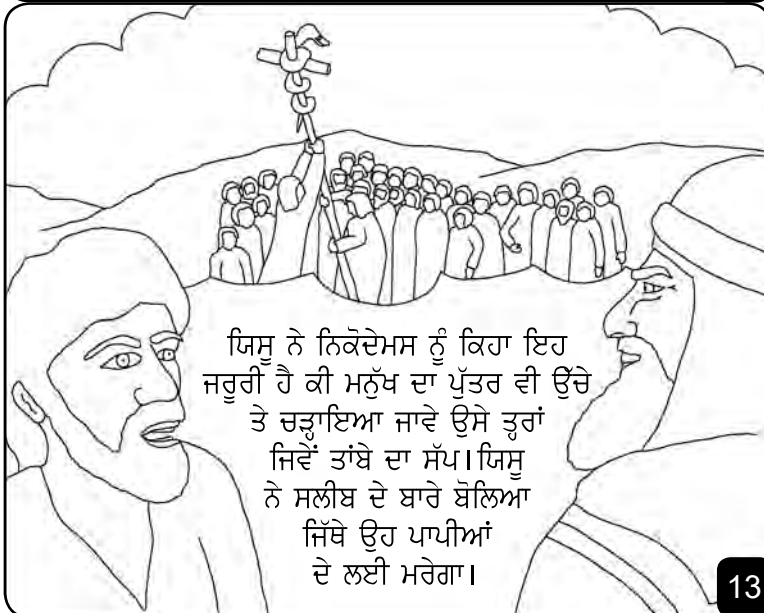 ਯਿਸੂ ਨੇ ਨਿਕੋਦੇਮਸ ਨੂੰ ਕਿਹਾ ਇਹ
ਜਰੂਰੀ ਹੈ ਕੀ ਮਨੁੱਖ ਦਾ ਪੁੱਤਰ ਵੀ ਉੱਚੇ
ਤੇ ਚੜ੍ਹਾਇਆ ਜਾਵੇ ਉਸੇ ਤ੍ਹਰਾਂ
ਜਿਵੇਂ ਤਾਂਬੇ ਦਾ ਸੱਪ।ਯਿਸੂ
ਨੇ ਸਲੀਬ ਦੇ ਬਾਰੇ ਬੋਲਿਆ
ਜਿੱਥੇ ਉਹ ਪਾਪੀਆਂ
ਦੇ ਲਈ ਮਰੇਗਾ।
13